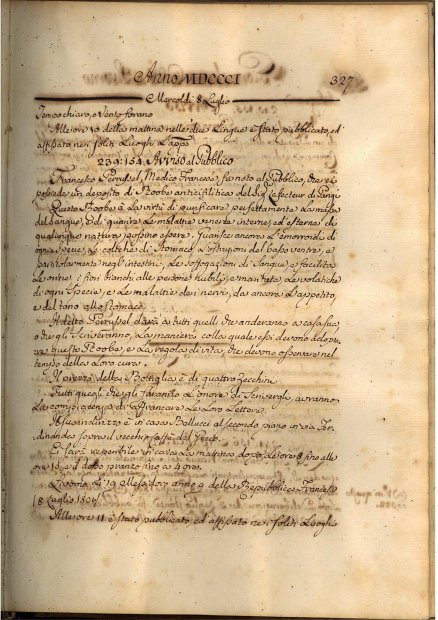 Anno MDCCCI 327
Mercoldì 8 Luglio
Tempo chiaro, e Vento forano
Alle ore 10 della mattina nelle due Lingue è stato pubblicato, ed
affissato nei soliti Luoghi L'apo
239:154 Avviso al Pubblico
Francesco Perussel, Medico Francese fa noto al Pubblico, che ei
possiede un deposito di Roobe antisifilitica del Sig.
Questo Roobe à la virtù di purificare perfettamente La massa
del Sangue, e di quarire Le malattie veneree interne, ed esterne di
qualunque natura possino essere. Guarisce ancora L'emoroidi di
ogni specie, Le coliche di stomaco, L'ostruzioni del basso ventre, e
particolarmente negl'intestini. Le soffogazioni di Sangue, e facilita
Le orine, i fiori bianchi alle persone Nubili, e maritate, Le volatiche
di ogni specie, e Le malattie dei nervi, dà ancora L'appetito,
e del tono allo stomaco.
Il detto Perussel darà a tutti quelli che anderanno a casa sua,
o che gli scriveranno, La maniera colla quale essi devono
questo Roobe, e La regola di vita, che devono osservare nel
tempo della Loro cura.
Il prezzo della Bottiglia è di quattro Zecchini
Tutti quei che gli faranno L'onore di Scrivergli, avranno
La compiacenza di affrancare Le Loro Lettere.
Il suo indirizzo è in casa Bellucci al secondo piano in via Fer-
dinanda sopra il vecchio
E sarà reperibile in casa La mattina dopo Le ore 8 fino alle
ore 10, e il dopo pranzo fino a 4 ore.
Livorno Lì 19 Messidoro anno 9 della Repubblica Francese
8 Luglio 1801
Alle ore 11 è stato pubblicato, ed affissato nei soliti Luoghi